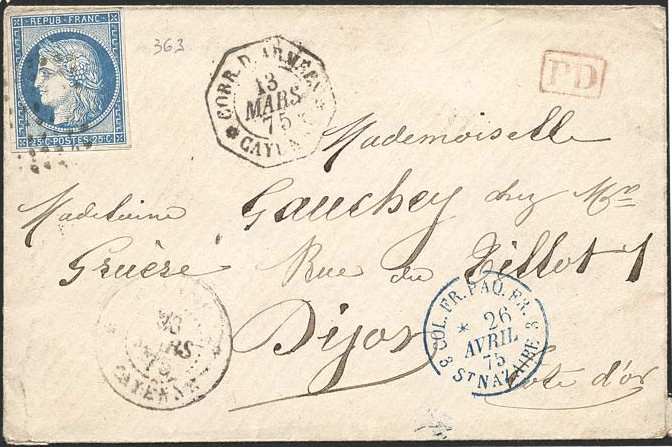 REPUB. FRANC.
25 C. POSTES 25 C.
363
CORR. D. ARMEES
13
MARS
75
CAYENNE
PD
Mademoiselle
Madeleine Gauchey chez Mr
Gruère Rue du Tillot 1
Dijon
Côte d'or
MARS
75
CAYENNE
COL. FR. PAQ. FR.
26
AVRIL
75
3 ST NAZAIRE 3